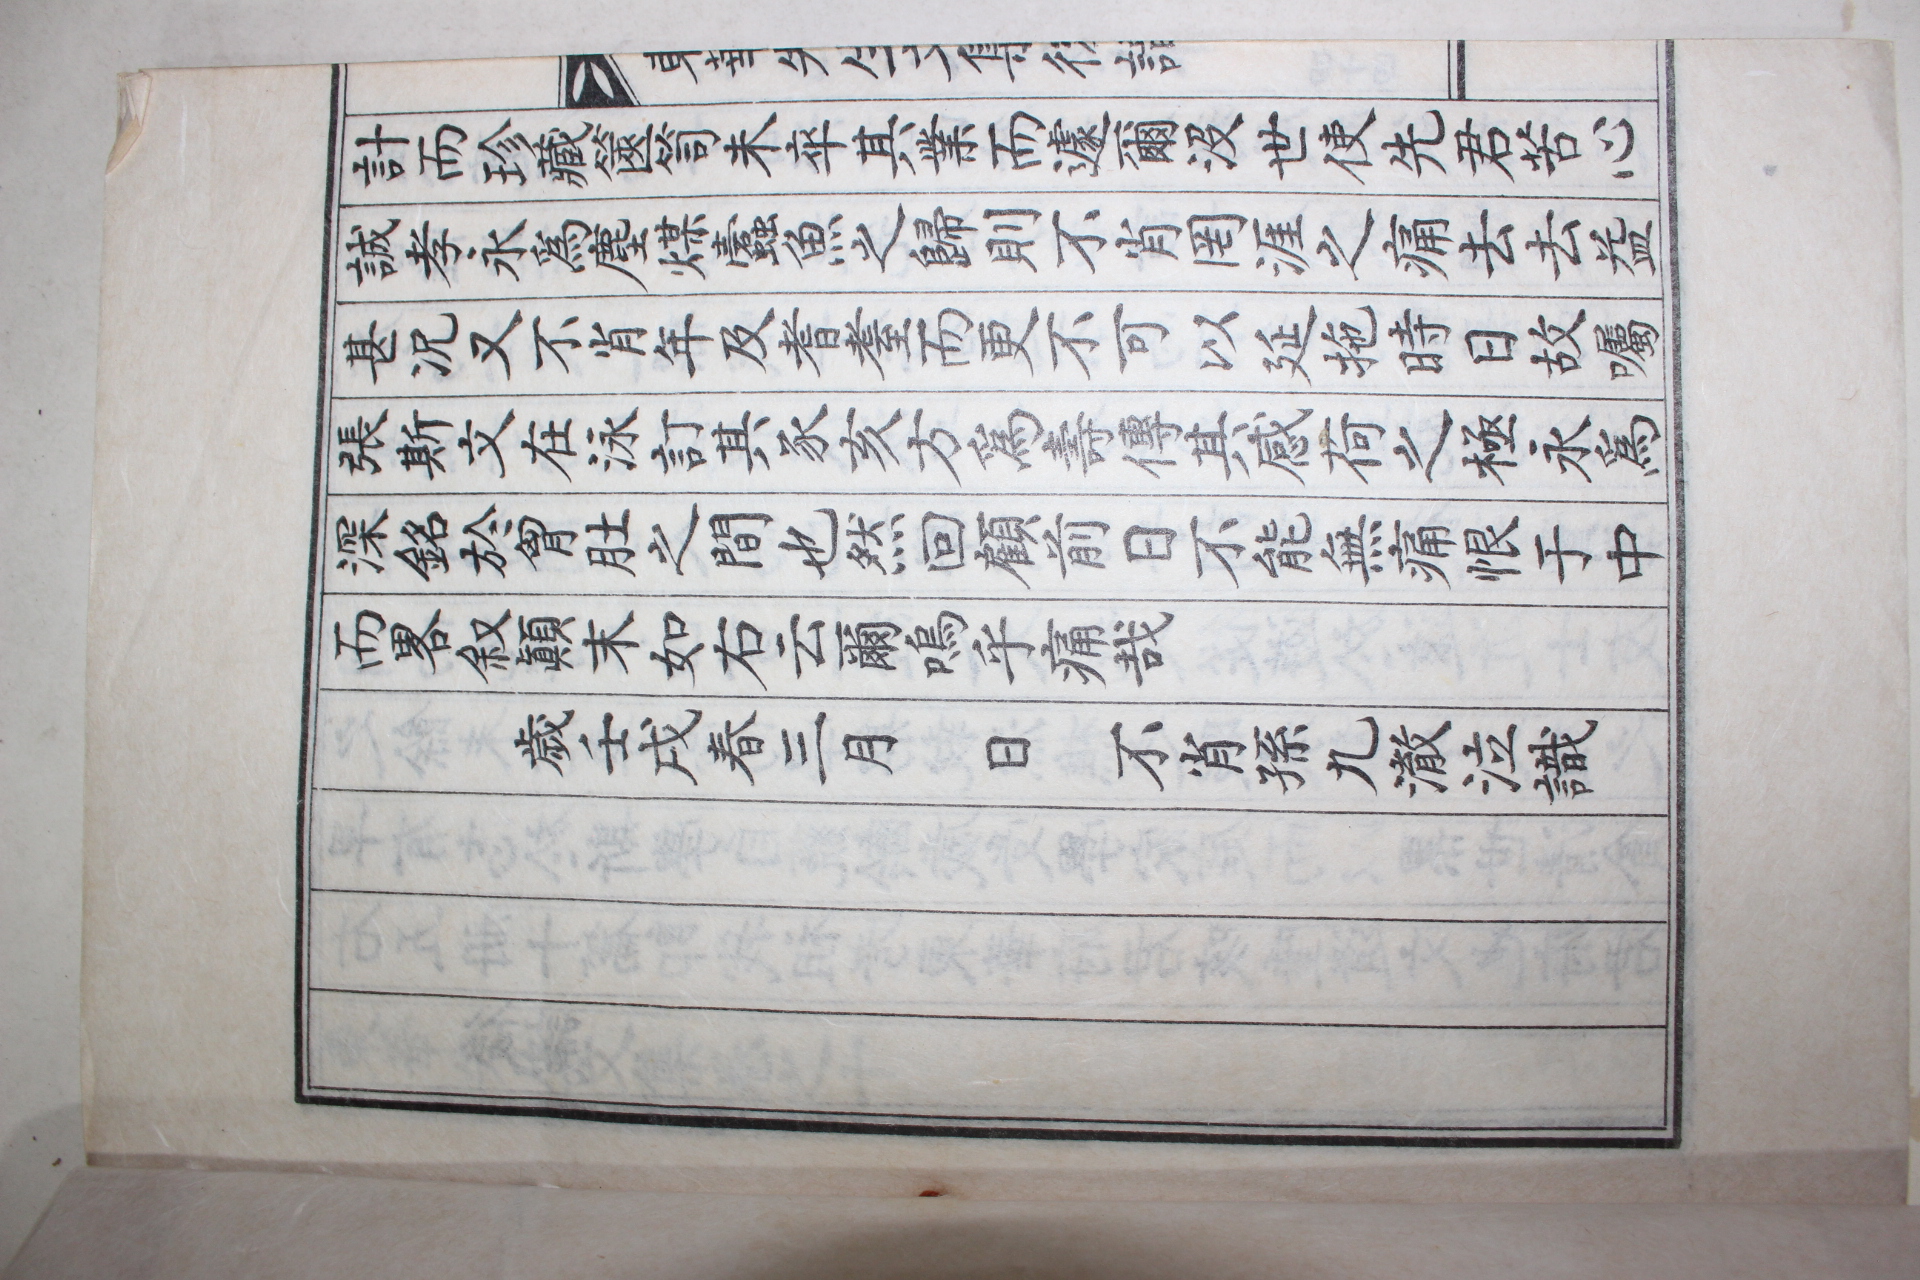 計而珍藏篋笥未卒其業而遽爾沒世使先君苦心
誠孝永爲塵煤蠹魚之歸則不肖罔涯之痛去去益
甚况又不肖年及耆耋而更不可以延拖時日故囑
張斯文在泳訂其豕亥方爲壽傳其感荷之極永爲
深銘於胷肚之間也然回顧前日不能無痛恨于中
而畧叙顚末如右云爾嗚乎痛哉
歲壬戌春三月 日 不肖孫九澈泣識